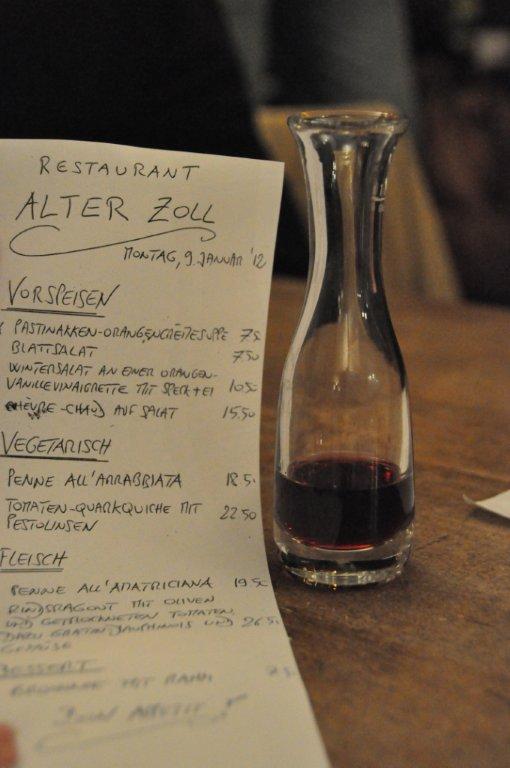 RESTAURANT
ALTER ZOLL
MONTAG, 9. JANUAR '12
VORSPEISEN
PASTINAKKEN-ORANGENCRÈMESUPPE 7.5
BLATTSALAT 7.50
WINTERSALAT AN EINER ORANGEN-
VANILLEVINAIGRETTE MIT SPECK+EI 10.50
CHÈVRE-CHAUD AUF SALAT 15.50
VEGETARISCH
PENNE ALL'ARRABBIATA 18.5
TOMATEN-QUARKQUICHE MIT 22.50
PESTOLINSEN
FLEISCH
PENNE ALL'AMATRICIANA 19.50
RINDSRAGOUT MIT OLIVEN
UND GETROCKNETEN TOMATEN,
DAZU GRATIN DAUPHINOIS UND 26.5
GEMÜSE
DESSERT
BROWNIE MIT RAHM 7.5
BON APPETIT